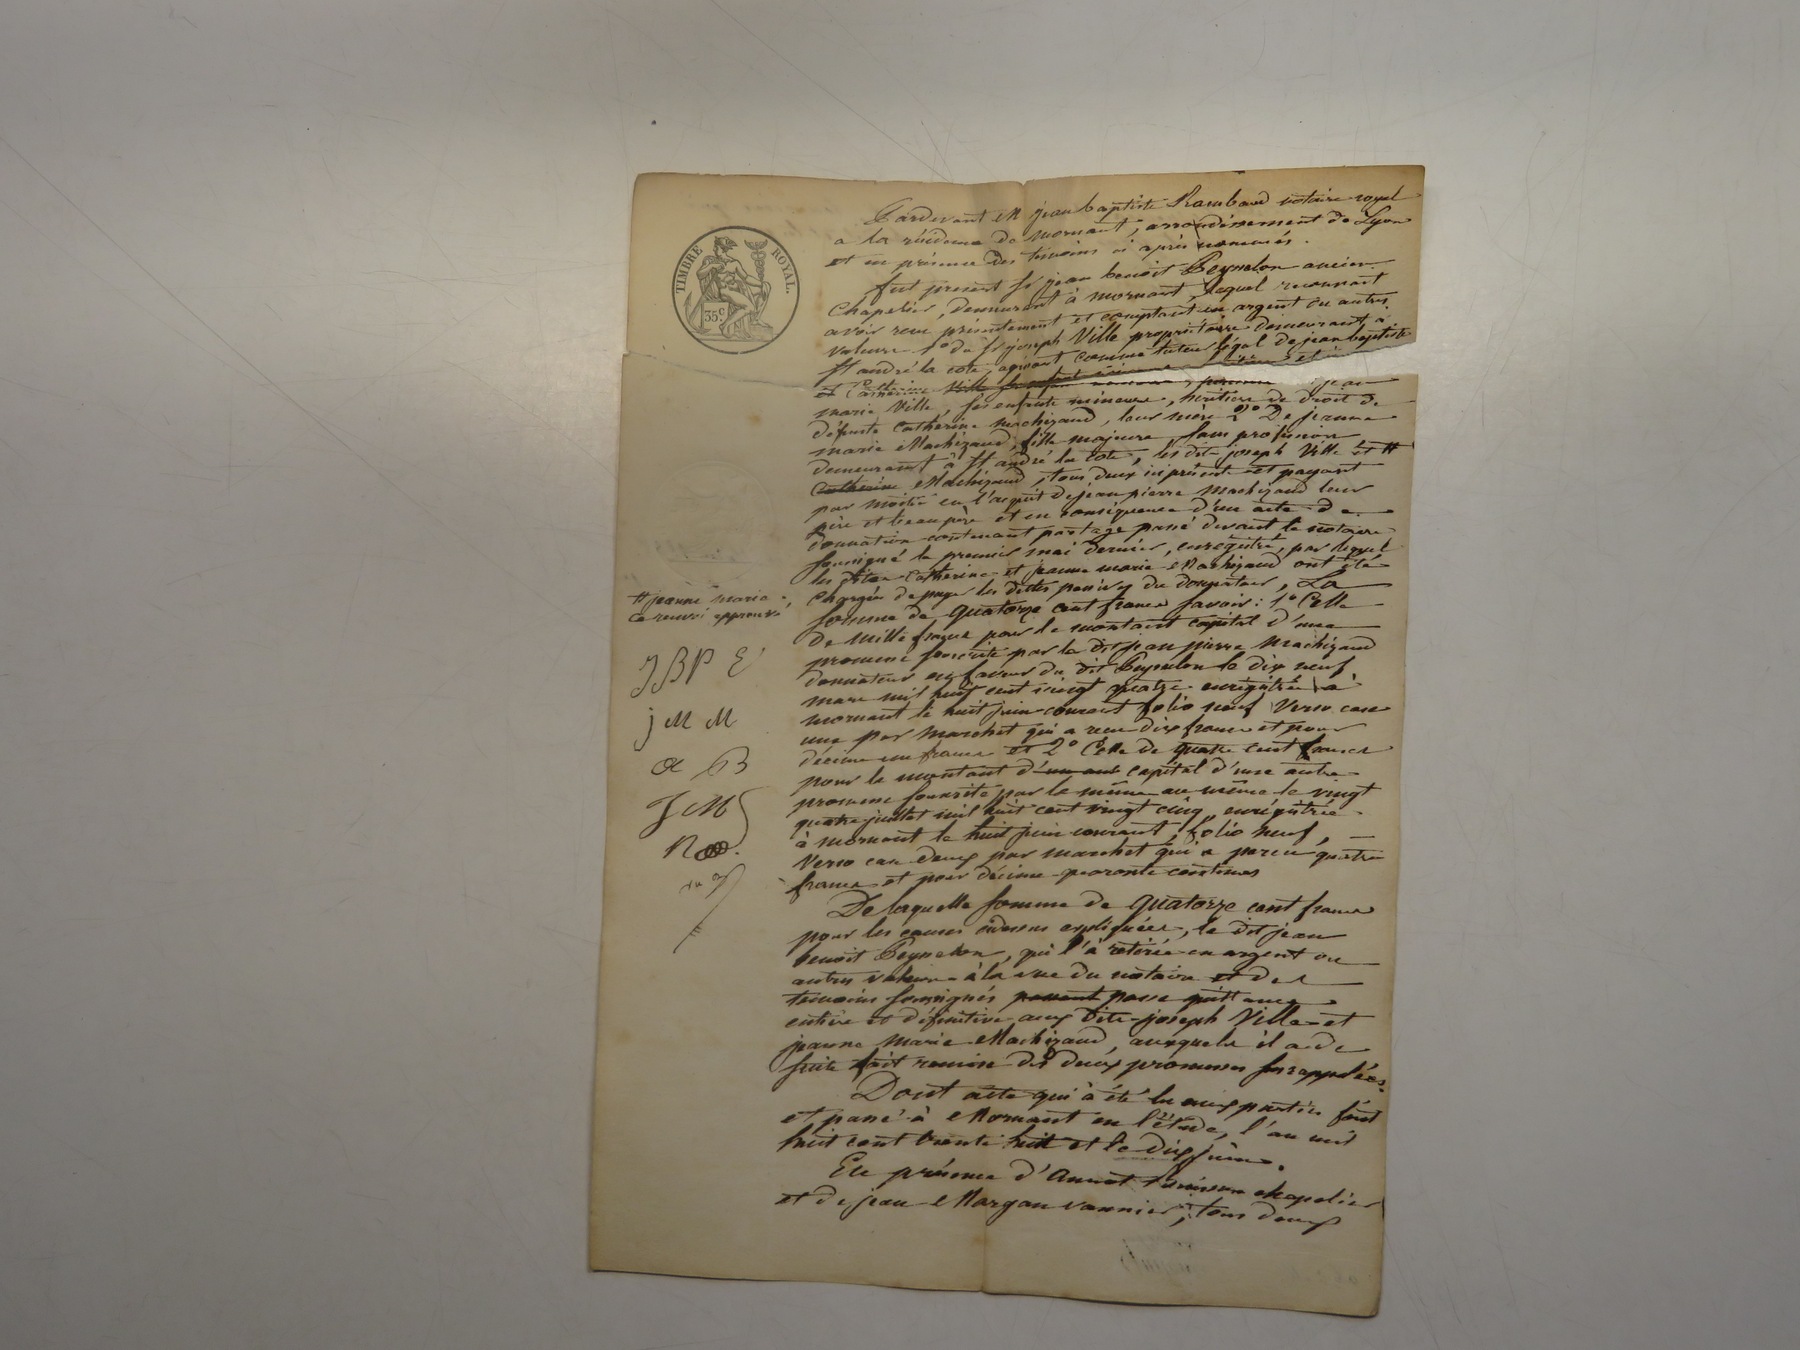 Pardevant Me jean baptiste Rambaud notaire royal
a la résidence de mornant, arrondissement de Lyon
et en présence des témoins ci après nommés.
TIMBRE ROYAL.
35 c.
fut présent sr jean benoit Peynelon ancien
Chapelier, demeurant à mornant, lequel reconnait
avoir reçu présentement et comptant en argent ou autres
valeurs 1° du sr joseph Ville propriétaire demeurant à
st andré la cote, agissant comme tuteur légal de jean baptiste
et Catherine Ville
marie Ville, ses enfants mineurs, héritiers de droit de
défunte Catherine Machizaud, leur mère 2° De jeanne
marie Machizaud, fille majeure, sans profession
demeurant à st andré la cote, les dits joseph Ville et #
Catherine Machizaud, tous deux ici présents et payant
par moitié en l'acquit de jean pierre Machizaud leur
père et beau père et en conséquence d'un acte de
donnation contenant partage passé devant le notaire
soussigné le premier mai dernier, enregistré, par lequel
les dites Catherine et jeanne marie Machizaud ont été
chargées de payer les dettes passives du donnateur, La
somme de quatorze cent francs savoir : 1° Celle
# jeanne Marie
Ce renvoi approuvé
De mille francs pour le montant capital d'une
promesse souscrite par le dit jean pierre Machizaud
donnateur en faveur du dit Peynelon le dix neuf
mars mil huit cent vingt quatre enregistrée à
mornant le huit juin courant folio neuf Verso case
une par Marchet qui a reçu dix francs et pour
décime un franc et 2° Celle de quatre cent francs
pour le montant d'un aut capital d'une autre
promesse souscrite par le même au même le vingt
quatre juillet mil huit cent vingt cinq, enregistrée
à mornant le huit juin courant, folio neuf,
Verso case deux par marchet qui a perçu quatre
francs et pour décime quarante centimes
JBP E
j M M
a B
J M
R
De laquelle somme de quatorze cent francs
pour les causes cidessus expliquées, le dit jean
benoit Peynelon, qui l'à retirée en argent ou
autres valeurs à la vue du notaire et des
témoins soussignés passent passe quittance
entière et définitive aux dits joseph Ville et
jeanne Marie Machizaud, auxquels il a de
suite fait remise des deux promesses susrappelées.
Dont acte qui à été lu aux parties fait
et passé à Mornant en l'étude, l'an mil
huit cent trente huit et le dix juin.
En présence d'Annet chapelier
et de jean Margan vannier, tous deux